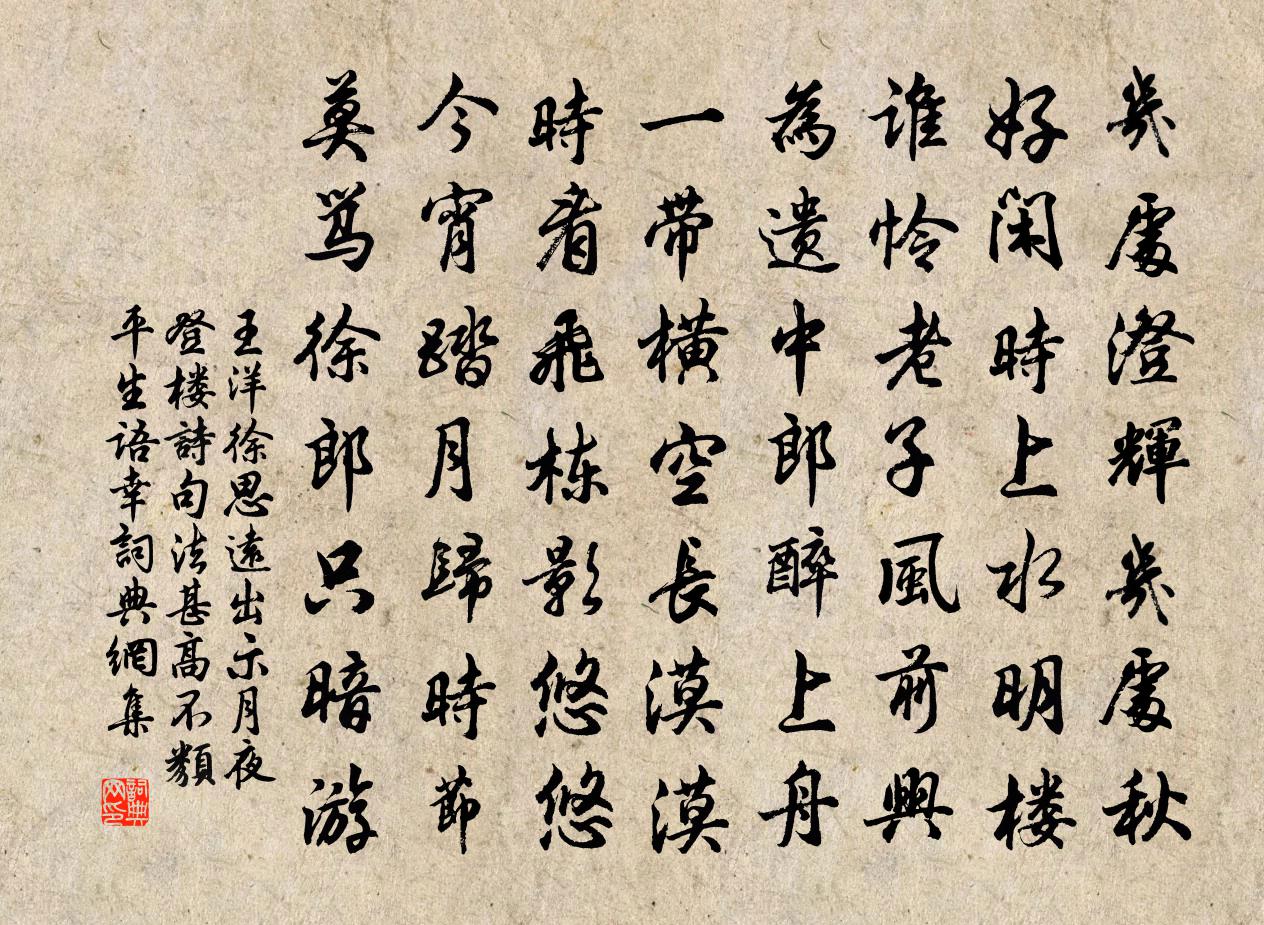 幾處澄輝幾處秋
好閑時上水明楼
谁怜老子風前興
為遗中郎醉上舟
一带横空長漠漠
時看飛栋影悠悠
今宵踏月歸時節
莫骂徐郎只暗游
王洋徐思遠出示月夜
登楼詩句法甚高不類
平生语幸詞典網集
詞典
网印